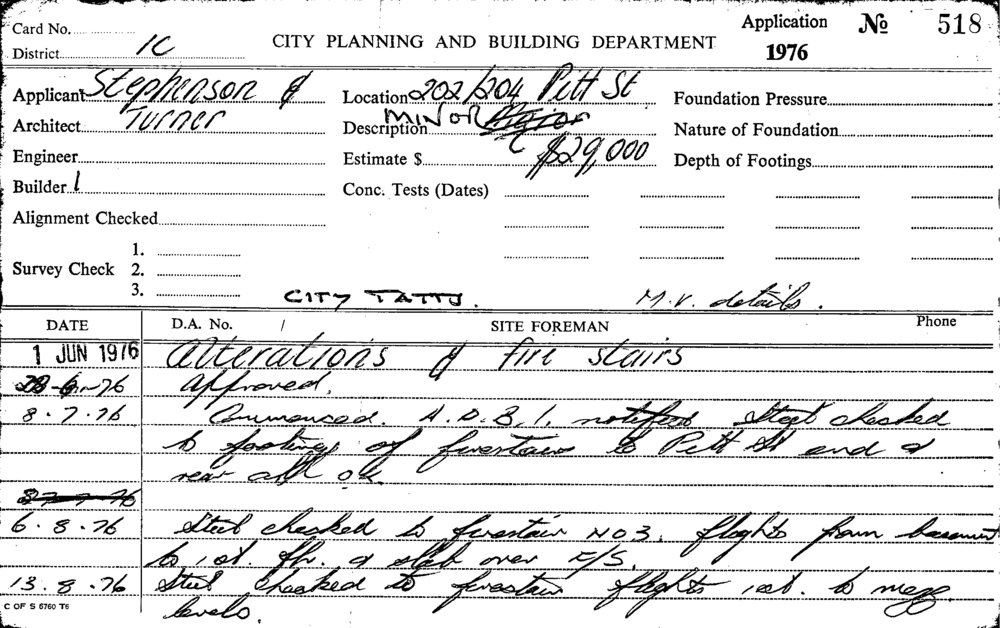 Card No.
District 1C
CITY PLANNING AND BUILDING DEPARTMENT
Application № 518
1976
Applicant Stephenson &
Architect Turner
Engineer
Builder 1
Alignment Checked
Survey Check
1.
2.
3.
Location 202/204 Pitt St
Description MINOR
Estimate $ $29,000
Conc. Tests (Dates)
Foundation Pressure
Nature of Foundation
Depth of Footings
CITY TATTS.
M.V. details.
DATE D.A. No. / SITE FOREMAN Phone
1 JUN 1976 Alterations & fire stairs
28-6-76 Approved.
8.7.76 Commenced. A.D.B.I. notified Steel checked
to footings of firestairs to Pitt St end &
rear all ok
27-7-76
6.8.76 Steel checked to firestair NO3. flights from basement
to 1st. flr. & slab over F/S.
13.8.76 Steel checked to firestair flights 1st. to mezz
levels.
C OF S 6760 T6